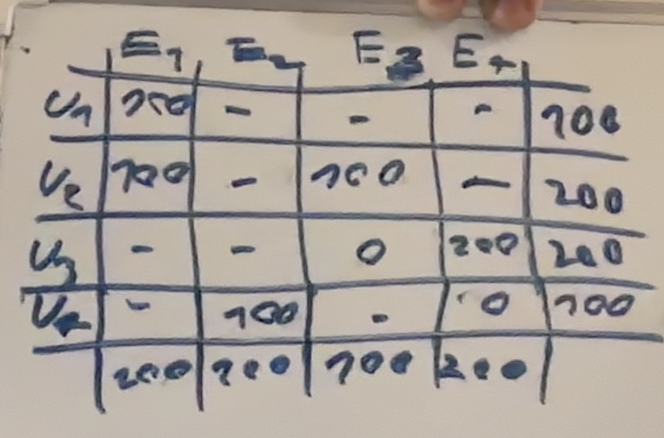 E1 E2 E3 E4
U1 100 - - - 100
U2 100 - 100 - 200
U3 - - 0 200 200
U4 - 100 - 0 100
200 100 100 200